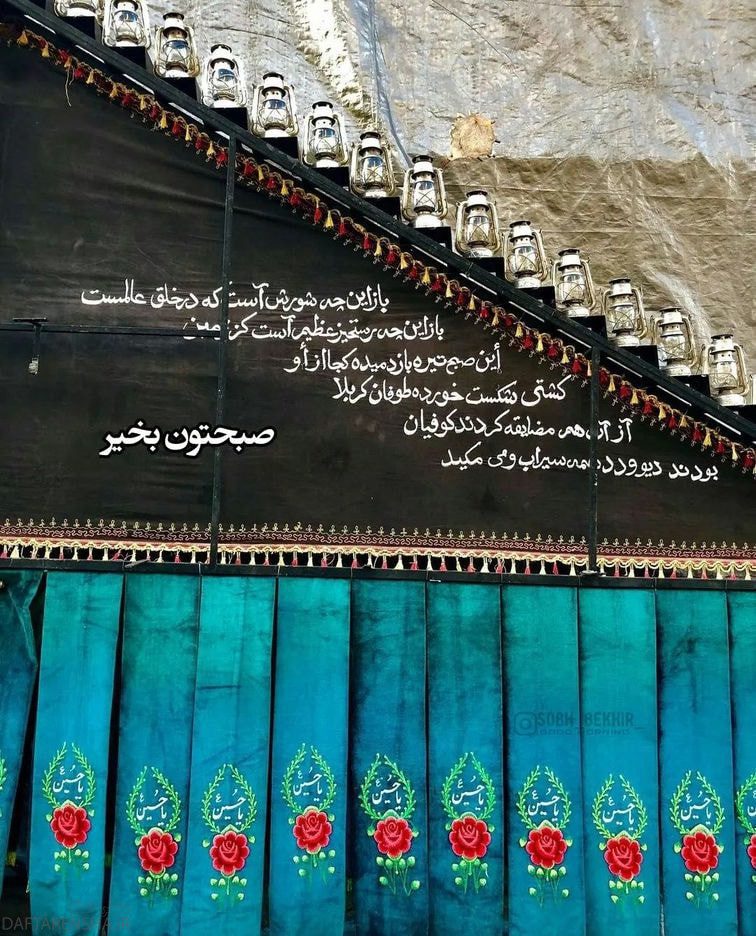 باز این چه شورش است که در خلق عالمست
باز این چه رستخیز عظیم است کز زمین
این صبح تیره باز دمیده کجا از او
کشتی شکست خورده طوفان کربلا
از آب هم مضایقه کردند کوفیان
بودند دیو و دد همه سیراب و می مکید
صبحتون بخیر
SOBH_BEKHIR_
GOOD MORNING
یا حسین ع
یا حسین ع
یا حسین ع
یا حسین ع
یا حسین ع
یا حسین ع
یا حسین ع
یا حسین ع
یا حسین ع